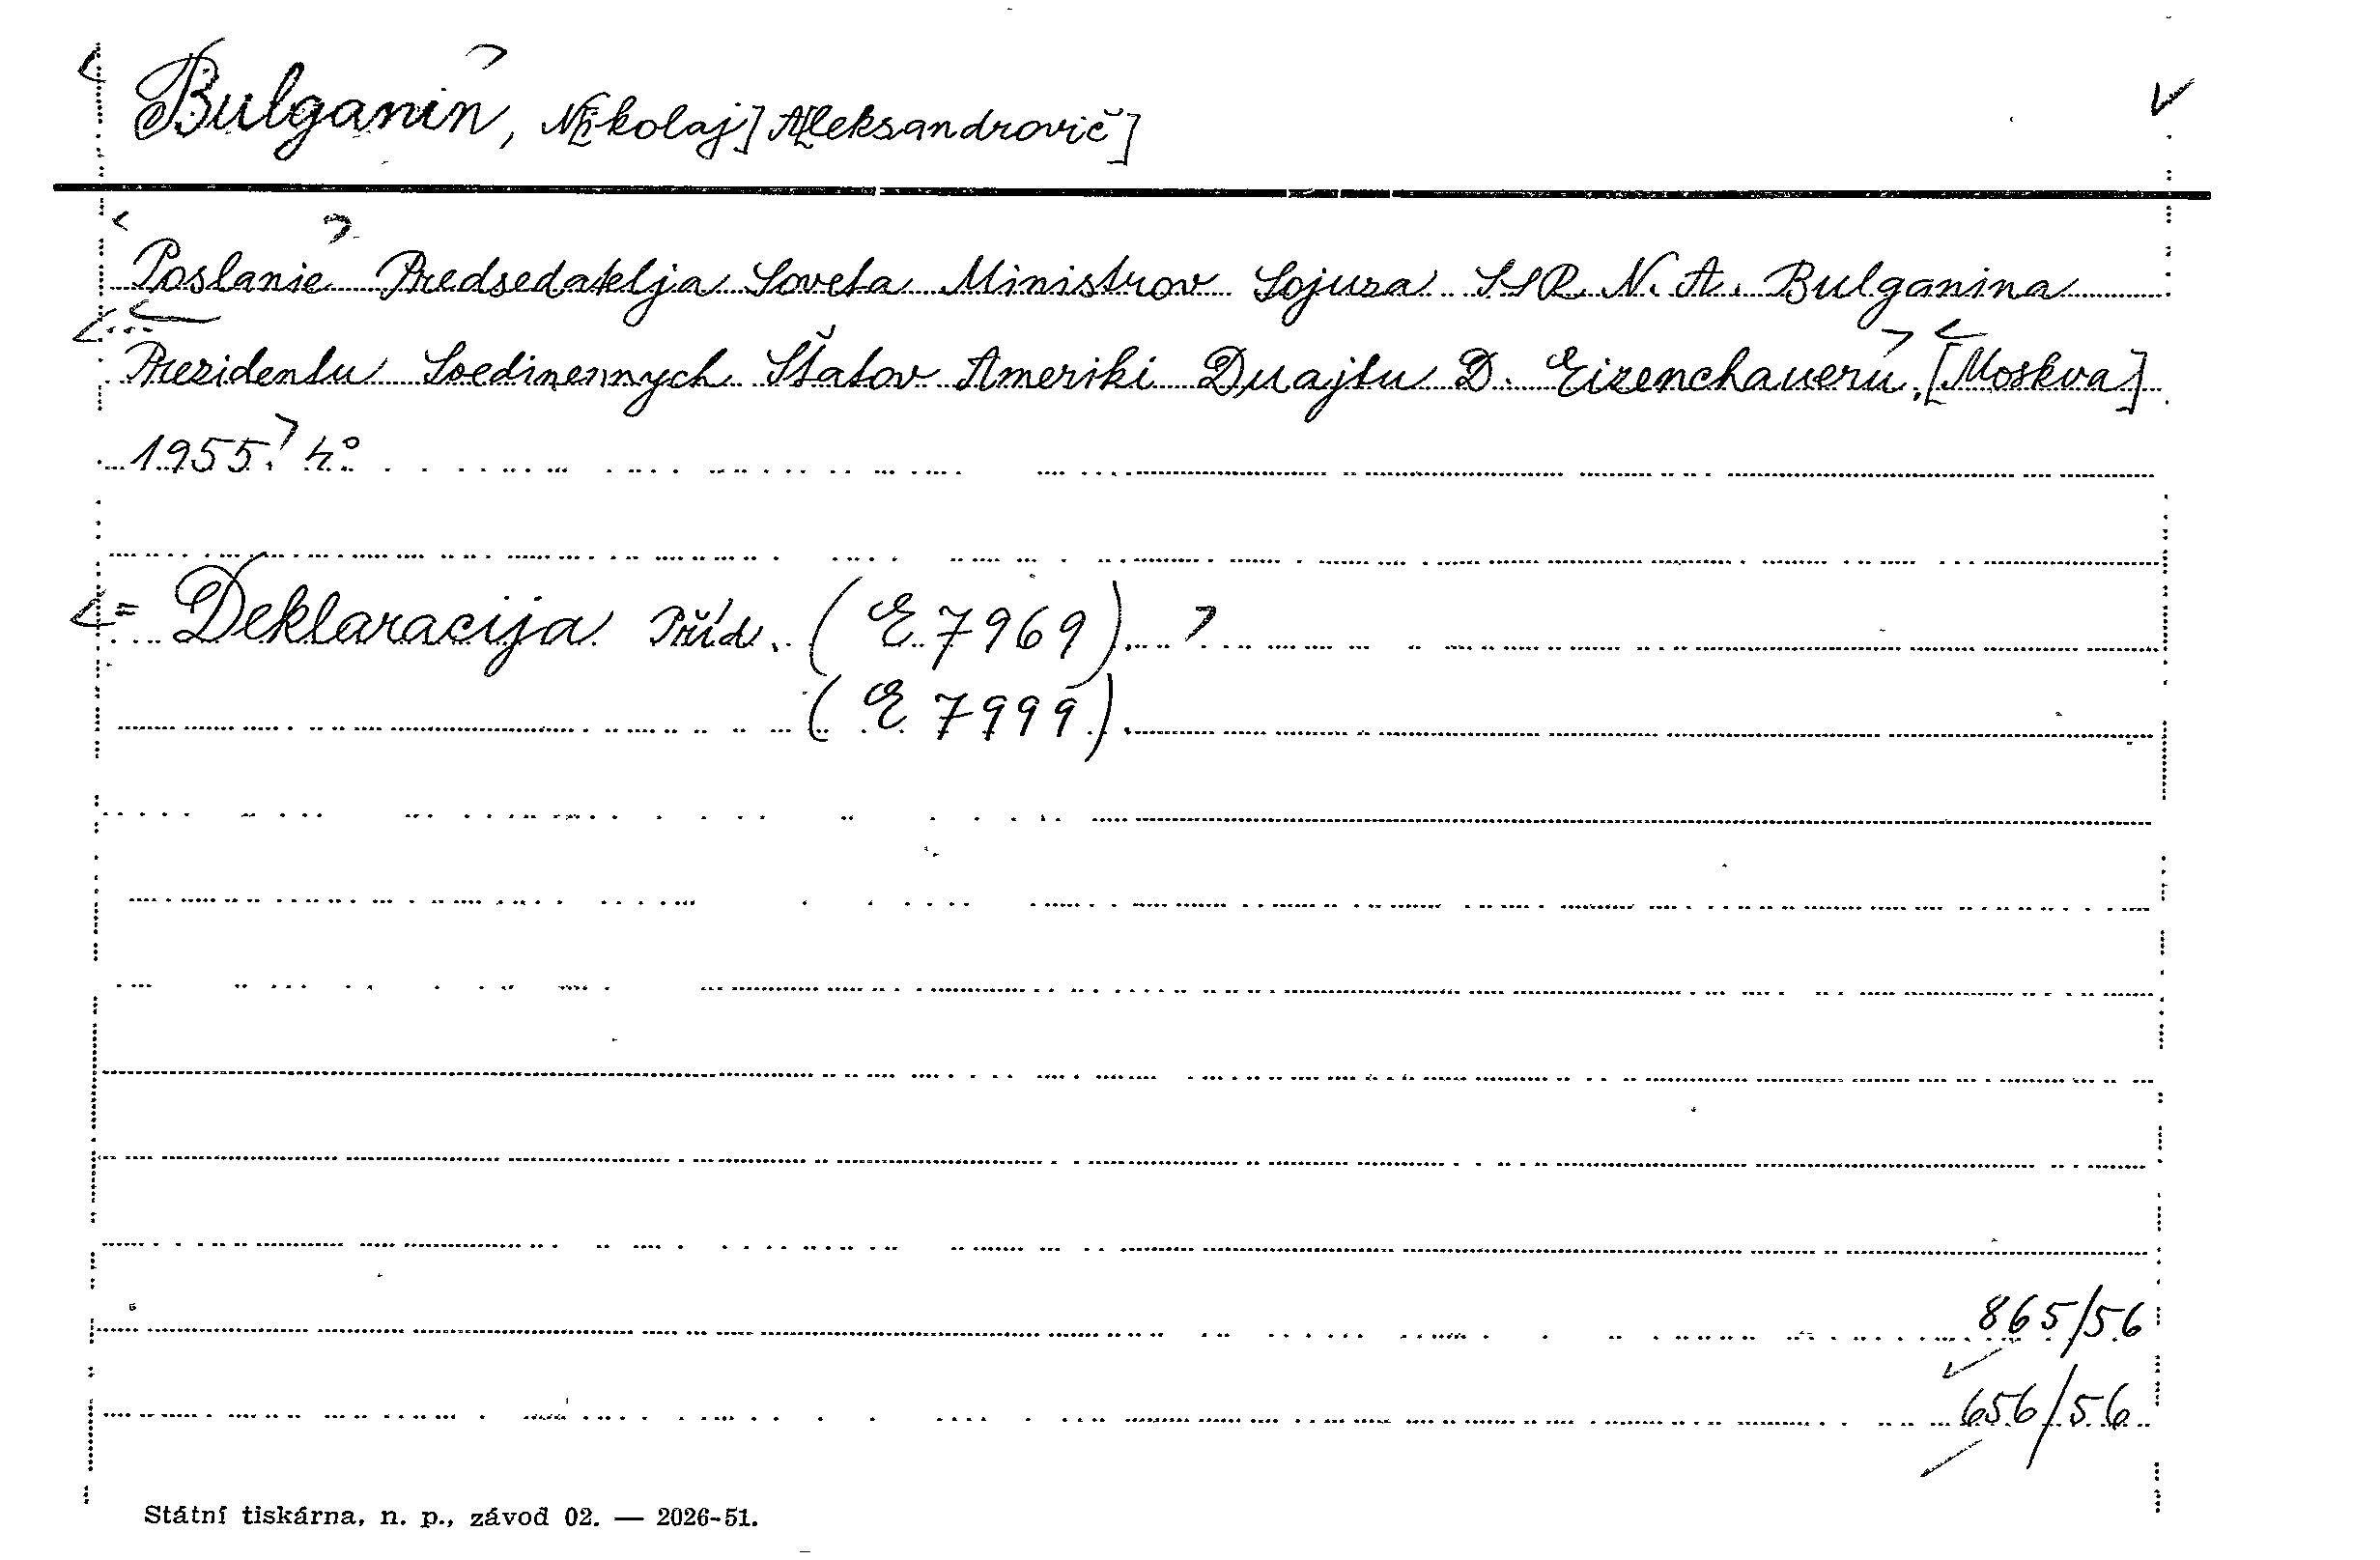 Bulganin, N[ikolaj] A[leksandrovič]
Poslanie Predsedatelja Soveta Ministrov Sojuza SSR N. A. Bulganina
Prezidentu Soedinennych Štatov Ameriki Duajtu D. Eizenchaueru, [Moskva]
1955. 4°
= Deklaracija Příd. (E 7969).
(E 7999).
865/56
656/56
Státní tiskárna, n. p., závod 02. — 2026-51.